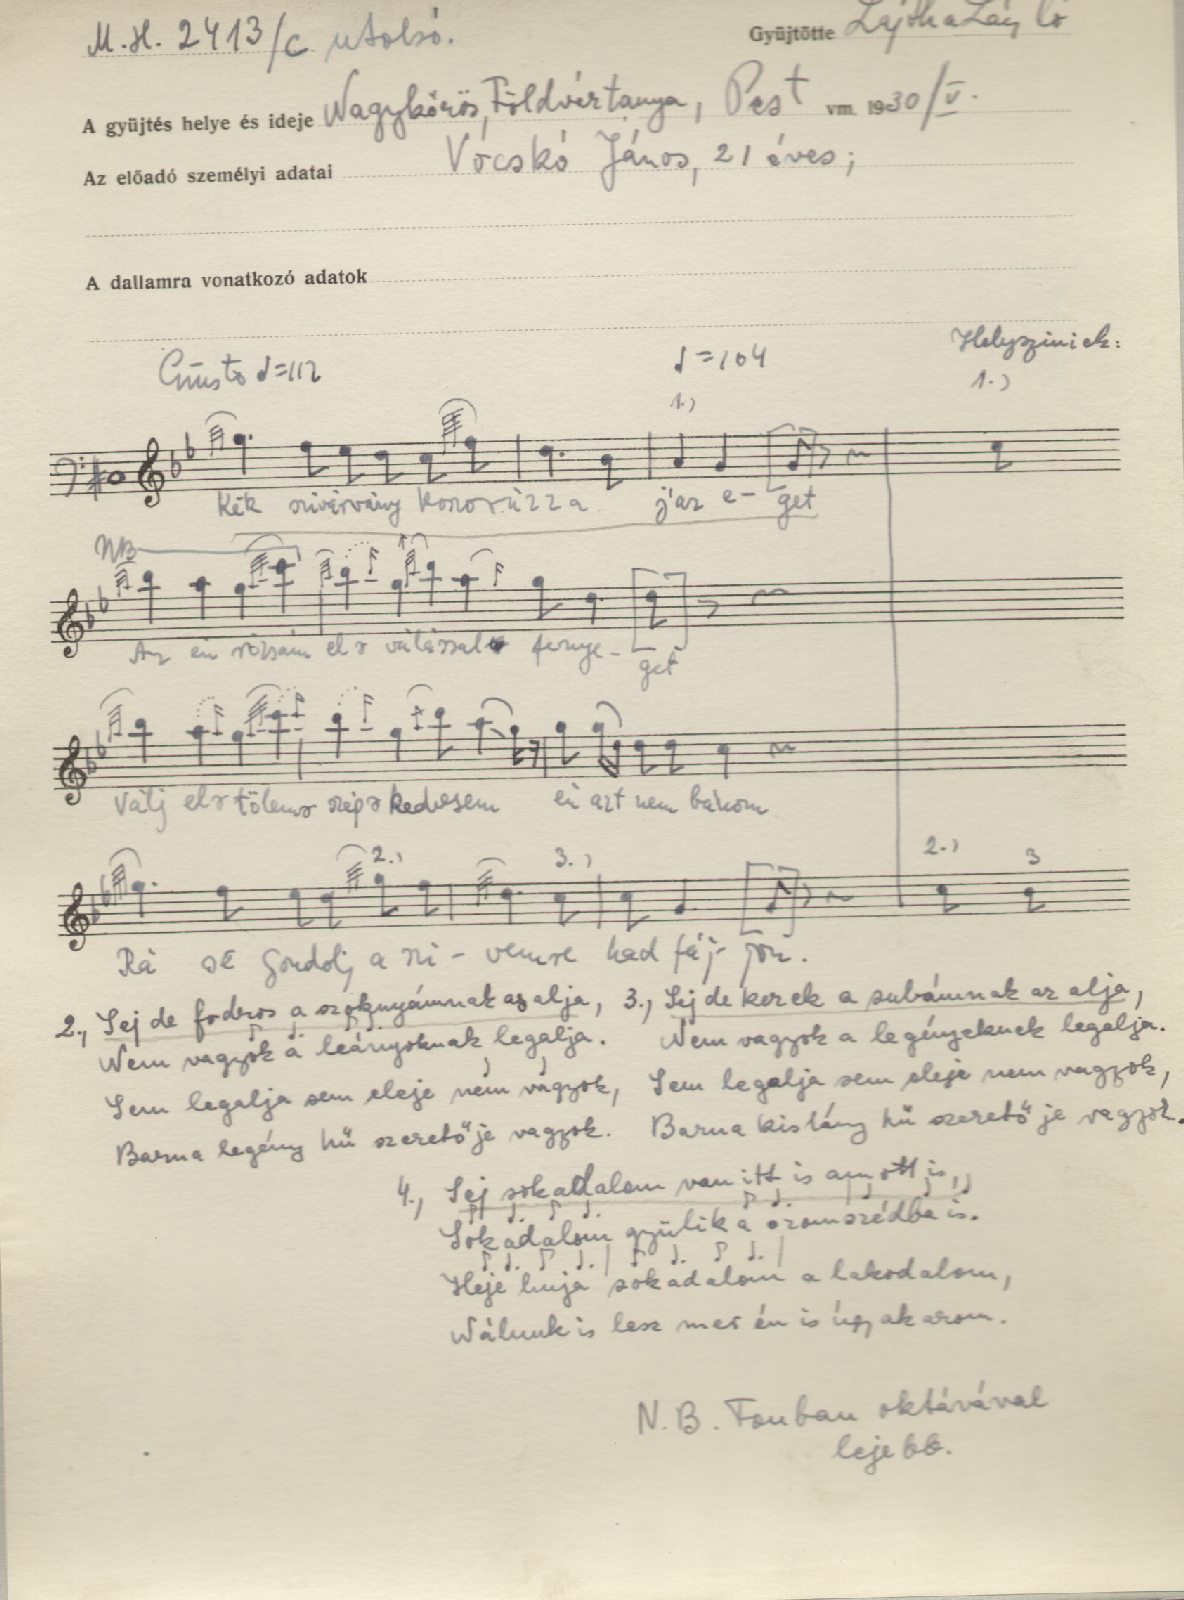 M.H. 2413/c utolsó.
Gyüjtötte Lajtha László
A gyüjtés helye és ideje Nagykőrös, Földvértanya, Pest vm. 1930/V.
Az előadó személyi adatai Vócskó János, 21 éves;
A dallamra vonatkozó adatok
Helyszíniek:
Giusto ♩=112
♩=104
1.)
1.)
Kék szivárvány koszorúzza j'az e-get
NB
Az én rózsám eləválással fenye-get
Válj elə tőlemə szépə kedvesem én azt nem bánom
2.)
3.)
2.)
3
Rá se gondolj a szi-vemre had fáj-jon.
2., Sej de fodros a szoknyámnak az alja,
Nem vagyok a leányoknak legalja.
Sem legalja sem eleje nem vagyok,
Barna legény hű szeretője vagyok.
3., Sej de kerek a subámnak az alja,
Nem vagyok a legényeknek legalja.
Sem legalja sem eleje nem vagyok,
Barna kislány hű szeretője vagyok.
4., Sej sokadalom van itt is amott is,
Sokadalom gyűlik a szomszédba is.
Heje huja sokadalom a lakodalom,
Nálunk is lesz mer én is úgy akarom.
N.B. Fonban oktávával
lejebb.